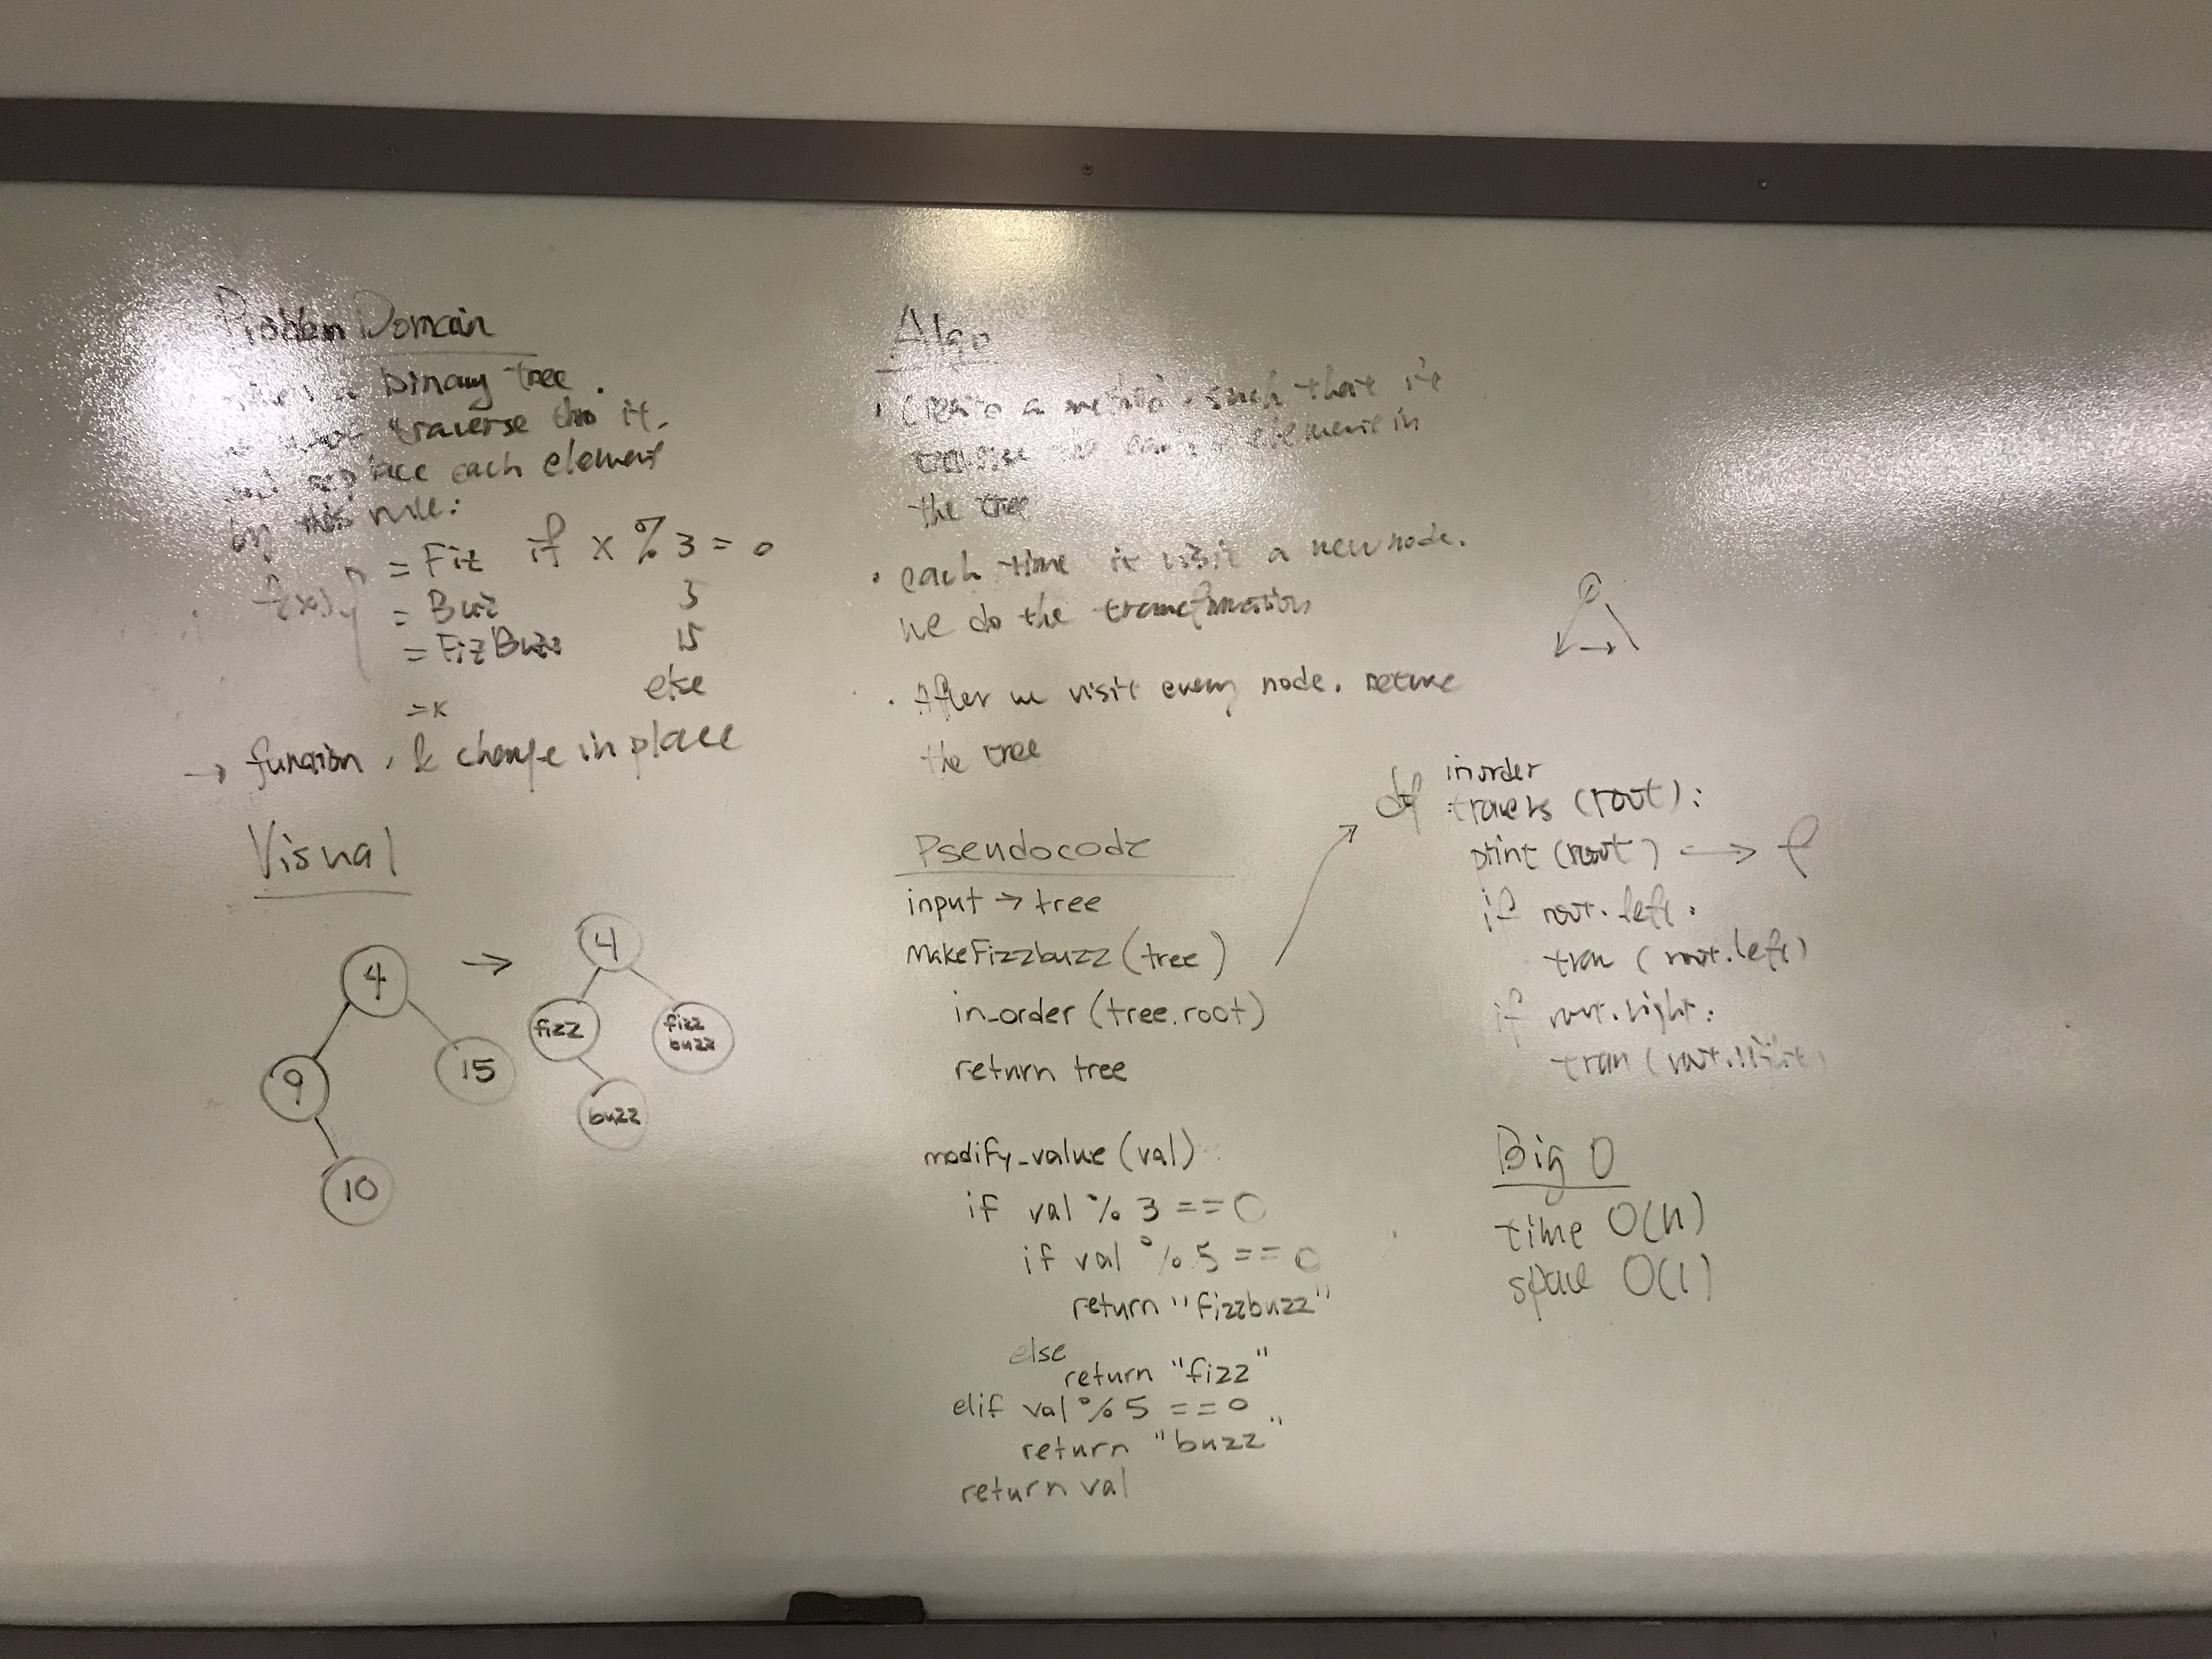 Problem Domain
binary tree.
traverse thro it.
and replace each element
by this rule:
f(x) = Fiz if x % 3 = 0
= Buz 5
= FizBuzz 15
= x else
→ function, & change in place
Visual
4
9
15
10
→
4
fizz
fizz
buzz
buzz
Algo
• Create a method, such that it's
traverse the each element in
the tree
• each time it visit a new node.
we do the transformation
• After we visit every node. return
the tree
Pseudocode
input → tree
makeFizzbuzz (tree)
in_order (tree.root)
return tree
modify_value (val)
if val % 3 == 0
if val % 5 == 0
return "fizzbuzz"
else
return "fizz"
elif val % 5 == 0
return "buzz"
return val
inorder
def travers (root):
print (root) → f
if root.left.
tran (root.left)
if root.right:
tran (root.right)
Big O
time O(n)
space O(1)